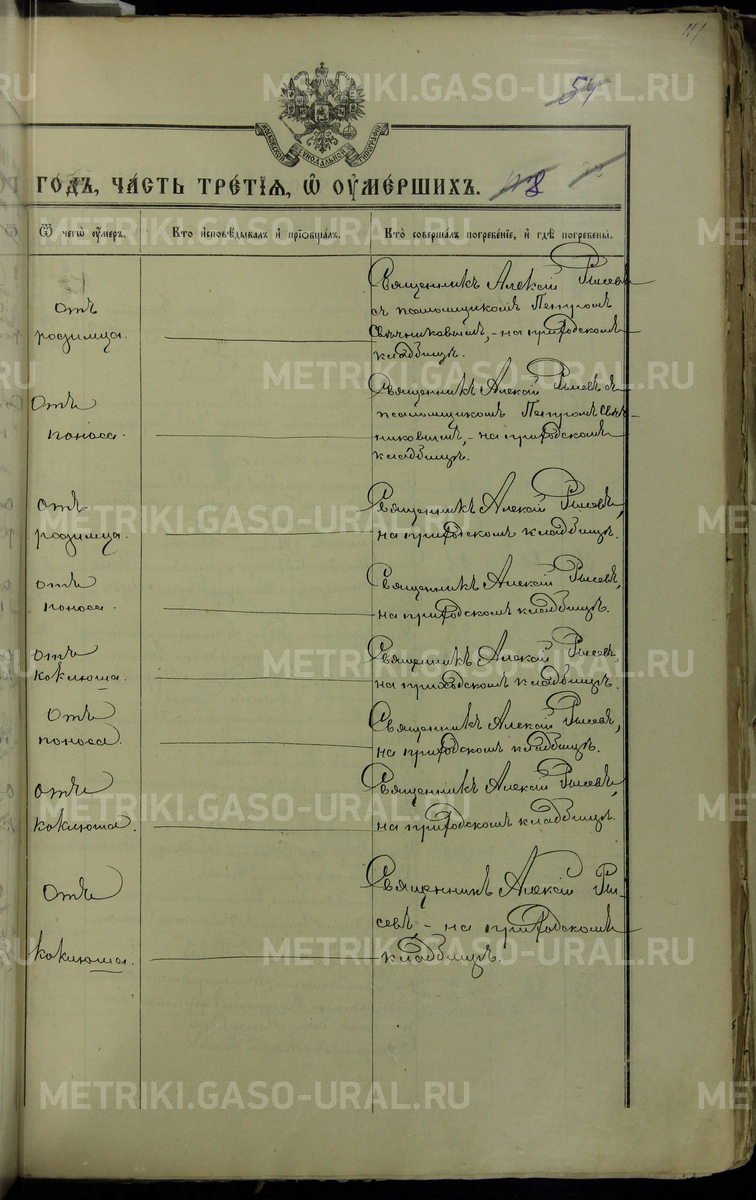 54
МОСКОВСКОЙ СѴНОДАЛЬНОЙ ТИПОГРАФІИ
ГОДЪ, ЧАСТЬ ТРЕТІЯ, Ѡ ОУМЕРШИХЪ. 8
Ѿ чегѡ оумеръ. Кто исповѣдывалъ и пріобщалъ. Кто совершалъ погребеніе, и гдѣ погребены.
отъ родимца.
Священникъ Алексій Рысевъ
съ псаломщикомъ Петромъ
Свѣчниковымъ, - на приходскомъ
кладбищѣ.
Отъ поноса.
Священникъ Алексій Рысевъ съ
псаломщикомъ Петромъ Свѣч-
никовымъ, - на приходскомъ
кладбищѣ.
отъ родимца.
Священникъ Алексій Рысевъ,
на приходскомъ кладбищѣ.
отъ поноса.
Священникъ Алексій Рысевъ,
на приходскомъ кладбищѣ.
отъ коклюша.
Священникъ Алексій Рысевъ,
на приходскомъ кладбищѣ.
Отъ поноса.
Священникъ Алексій Рысевъ,
на приходскомъ кладбищѣ.
отъ коклюша.
Священникъ Алексій Рысевъ,
на приходскомъ кладбищѣ.
Отъ коклюша.
Священникъ Алексій Ры-
севъ - на приходскомъ
кладбищѣ.
METRIKI.GASO-URAL.RU